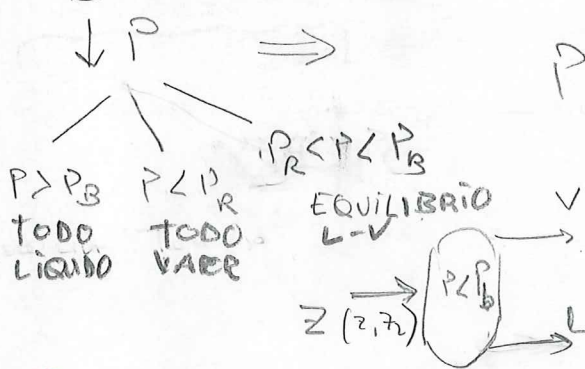 P
P
P > P_B
TODO
LÍQUIDO
P < P_R
TODO
VAPOR
P_R < P < P_B
EQUILIBRIO
L-V
V
P < P_b
Z (z, z₂)
L